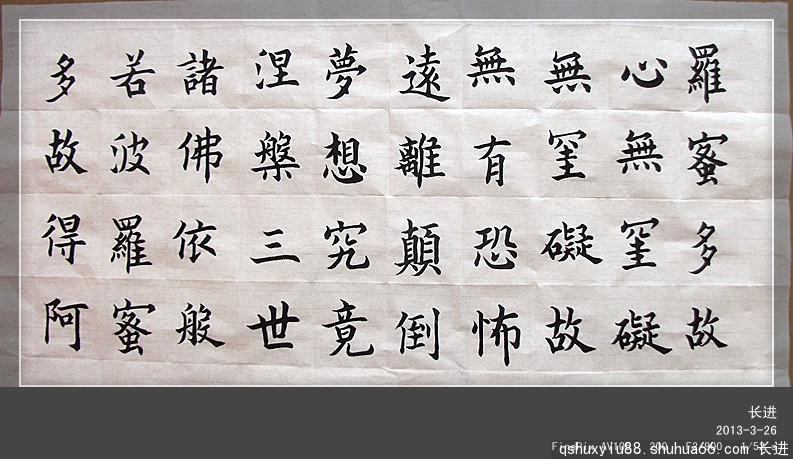 羅蜜多故
心無罣礙
無罣礙故
無有恐怖
遠離顛倒
夢想究竟
涅槃三世
諸佛依般
若波羅蜜
多故得阿
长进
2013-3-26
长进